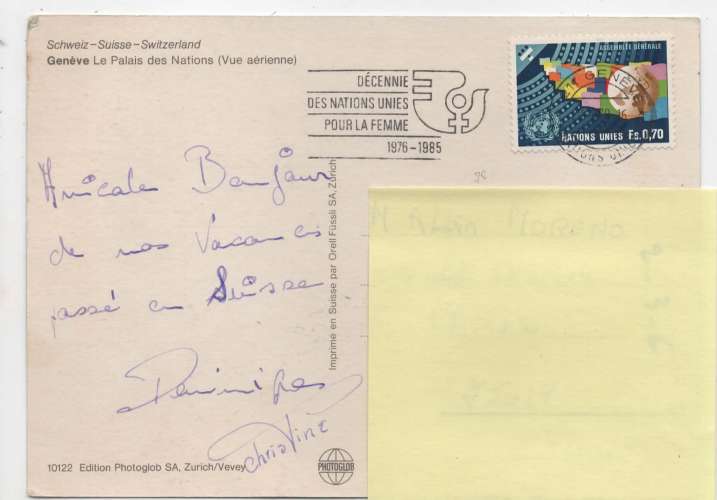 Schweiz-Suisse-Switzerland
Genève Le Palais des Nations (Vue aérienne)
DÉCENNIE
DES NATIONS UNIES
POUR LA FEMME
1976-1985
ASSEMBLÉE GÉNÉRALE
GENÈVE
NATIONS UNIES Fs.0,70
NATIONS UNIES
Amicale Bonjour
de nos Vacances
passé en Suisse
Christine
Imprimé en Suisse par Orell Füssli SA, Zurich
10122 Edition Photoglob SA, Zurich/Vevey
PHOTOGLOB